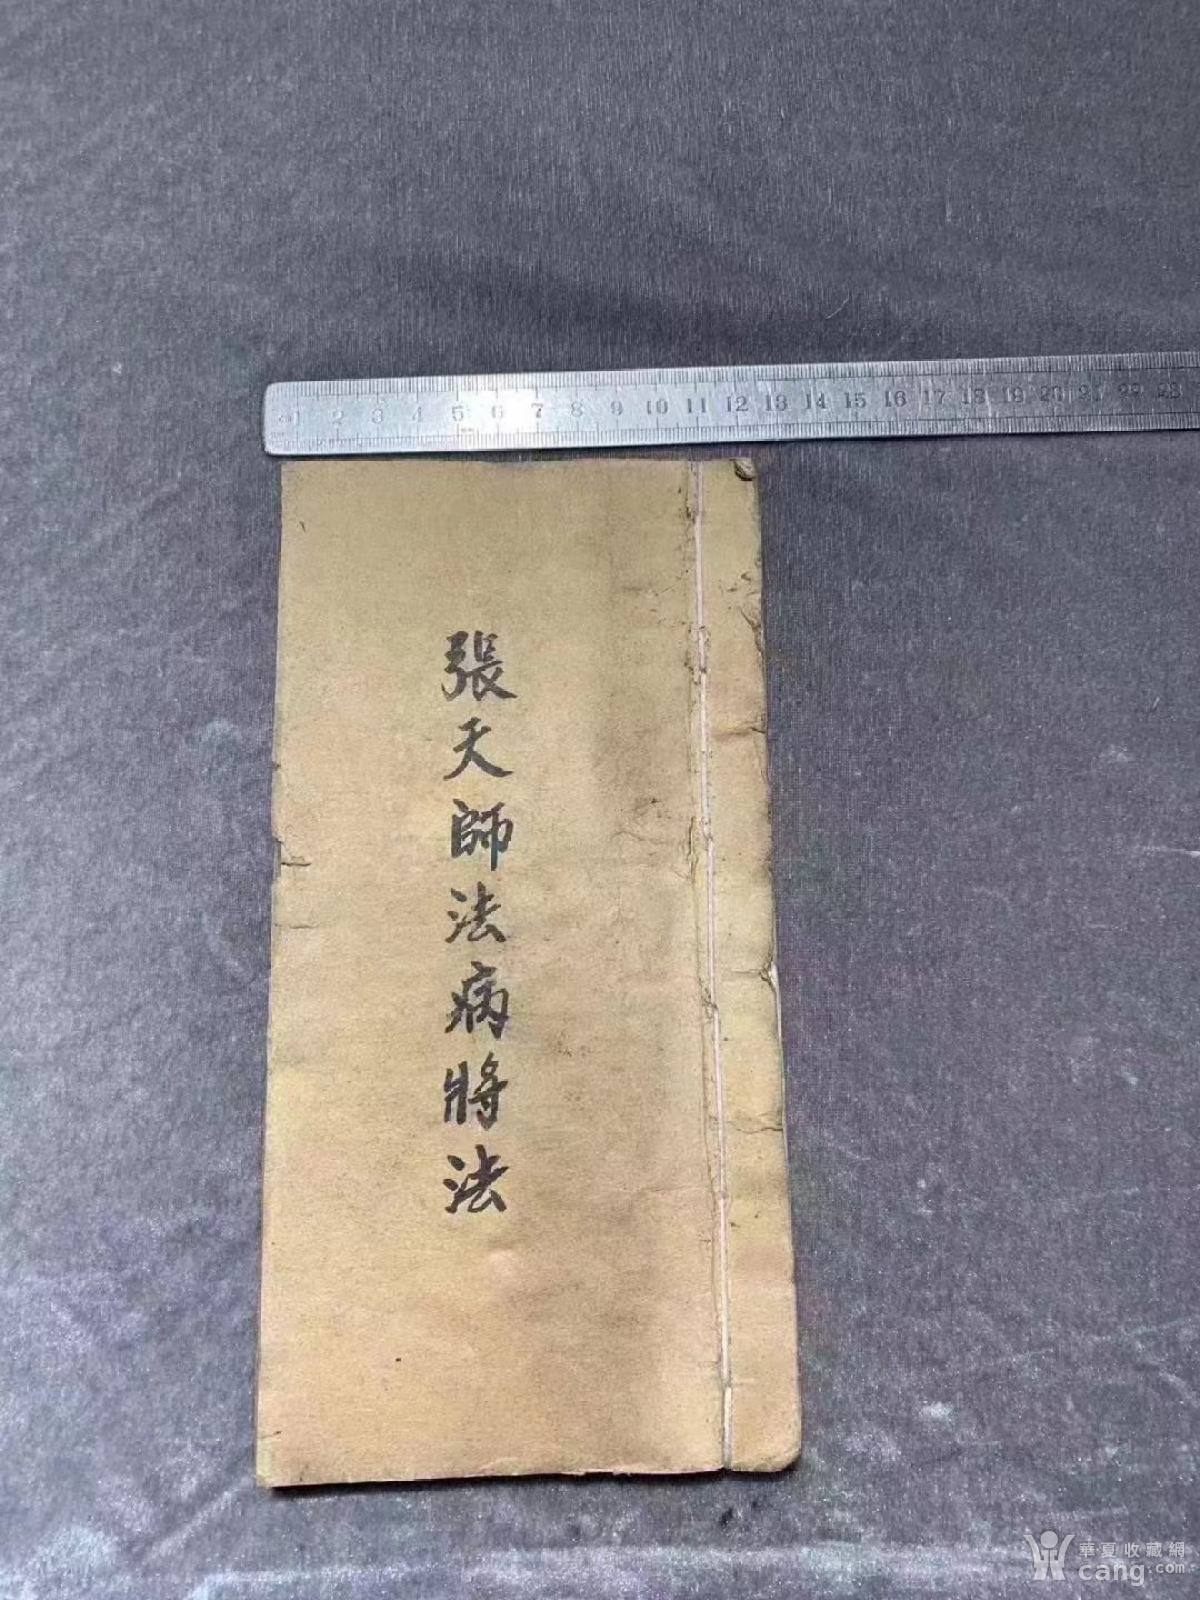 1 2 3 4 5 6 7 8 9 10 11 12 13 14 15 16 17 18 19 20 21 22 23
張天師法病將法
華夏收藏網
cang.com